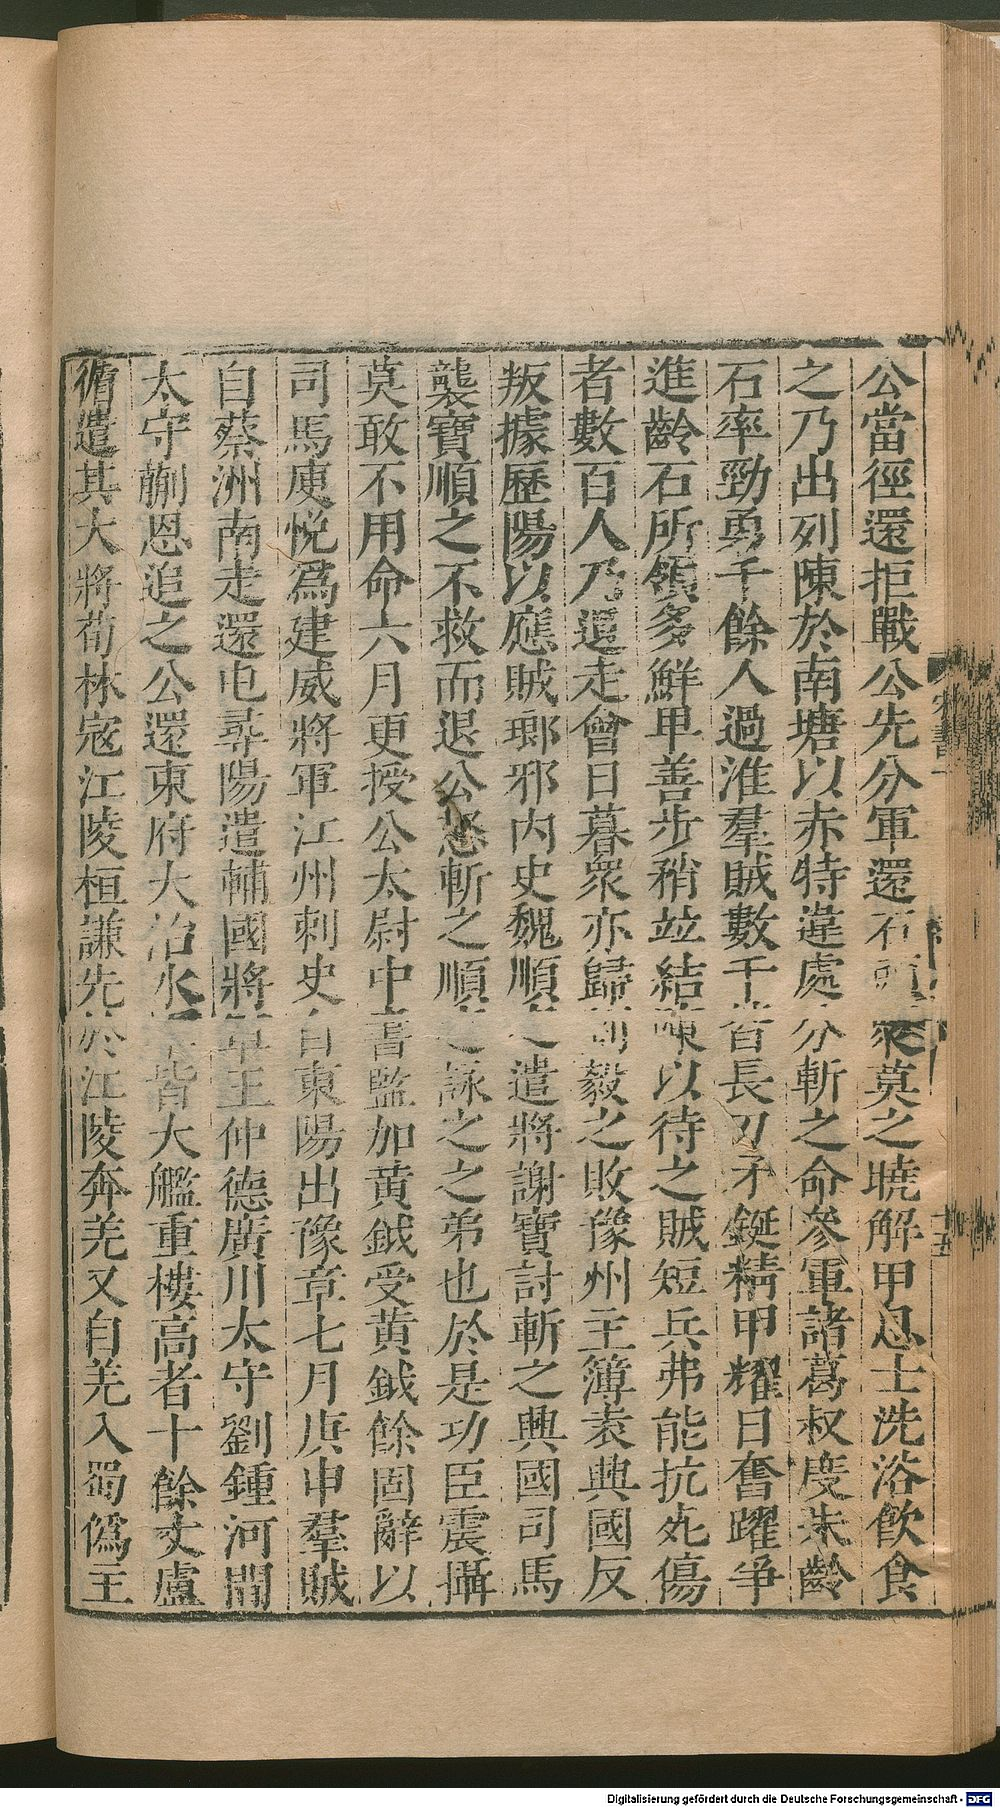 公當徑還拒戰公先分軍還石頭衆莫之曉解甲息士洗浴飲食
之乃出列陳於南塘以赤特違處分斬之命參軍諸葛叔度朱齡
石率勁勇千餘人過淮羣賊數千皆長刀矛鋋精甲耀日奮躍爭
進齡石所領多鮮卑善步矟竝結陳以待之賊短兵弗能抗死傷
者數百人乃退走會日暮衆亦歸劉毅之敗豫州主簿袁興國反
叛據歷陽以應賊瑯邪內史魏順之遣將謝寶討斬之興國司馬
襲寶順之不救而退公怒斬之順之詠之之弟也於是功臣震攝
莫敢不用命六月更授公太尉中書監加黃鉞受黃鉞餘固辭以
司馬庾悅爲建威將軍江州刺史自東陽出豫章七月庚申羣賊
自蔡洲南走還屯尋陽遣輔國將軍王仲德廣川太守劉鍾河間
太守蒯恩追之公還東府大治水軍皆大艦重樓高者十餘丈盧
循遣其大將荀林寇江陵桓謙先於江陵奔羌又自羌入蜀僞王
宋書一
十五
Digitalisierung gefördert durch die Deutsche Forschungsgemeinschaft - DFG